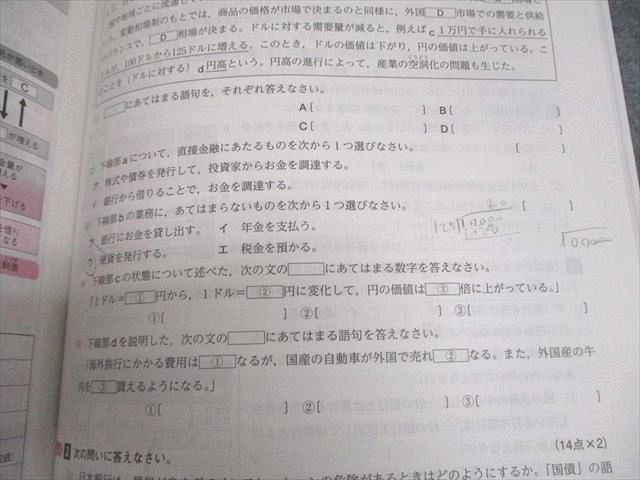 国や地域ごとに流通して
変動相場制のもとでは，商品の価格が市場で決まるのと同様に，外国 D 市場での需要と供給
のバランスで， D 相場が決まる。ドルに対する需要量が減ると，例えばc１万円で手に入れられる
ドルが，100ドルから125ドルに増える。このとき，ドルの価値は下がり，円の価値は上がっている。こ
のことを（ドルに対する）d円高という。円高の進行によって，産業の空洞化の問題も生じた。
くうどうか
にあてはまる語句を，それぞれ答えなさい。
A［ ］ B［ ］
C［ ］ D［ ］
下線部aについて，直接金融にあたるものを次から１つ選びなさい。 ［ ］
ア 株式や債券を発行して，投資家からお金を調達する。
イ 銀行から借りることで，お金を調達する。
下線部bの業務に，あてはまらないものを次から１つ選びなさい。 ［ ］
ア 銀行にお金を貸し出す。 イ 年金を支払う。
ウ 硬貨を発行する。 エ 税金を預かる。
下線部cの状態について述べた，次の文の にあてはまる数字を答えなさい。
「１ドル＝ ① 円から，１ドル＝ ② 円に変化して，円の価値は ③ 倍に上がっている。」
①［ ］ ②［ ］ ③［ ］
下線部dを説明した，次の文の にあてはまる語句を答えなさい。
「海外旅行にかかる費用は ① なるが，国産の自動車が外国で売れ ② なる。また，外国産の牛
肉を ③ 買えるようになる。」
①［ ］ ②［ ］ ③［ ］
2 次の問いに答えなさい。 （14点×2）
の危険があるときはどのようにするか。「国債」の語
C
が増える
金量が
下げる
を借り
なる
80
125 10000
10000